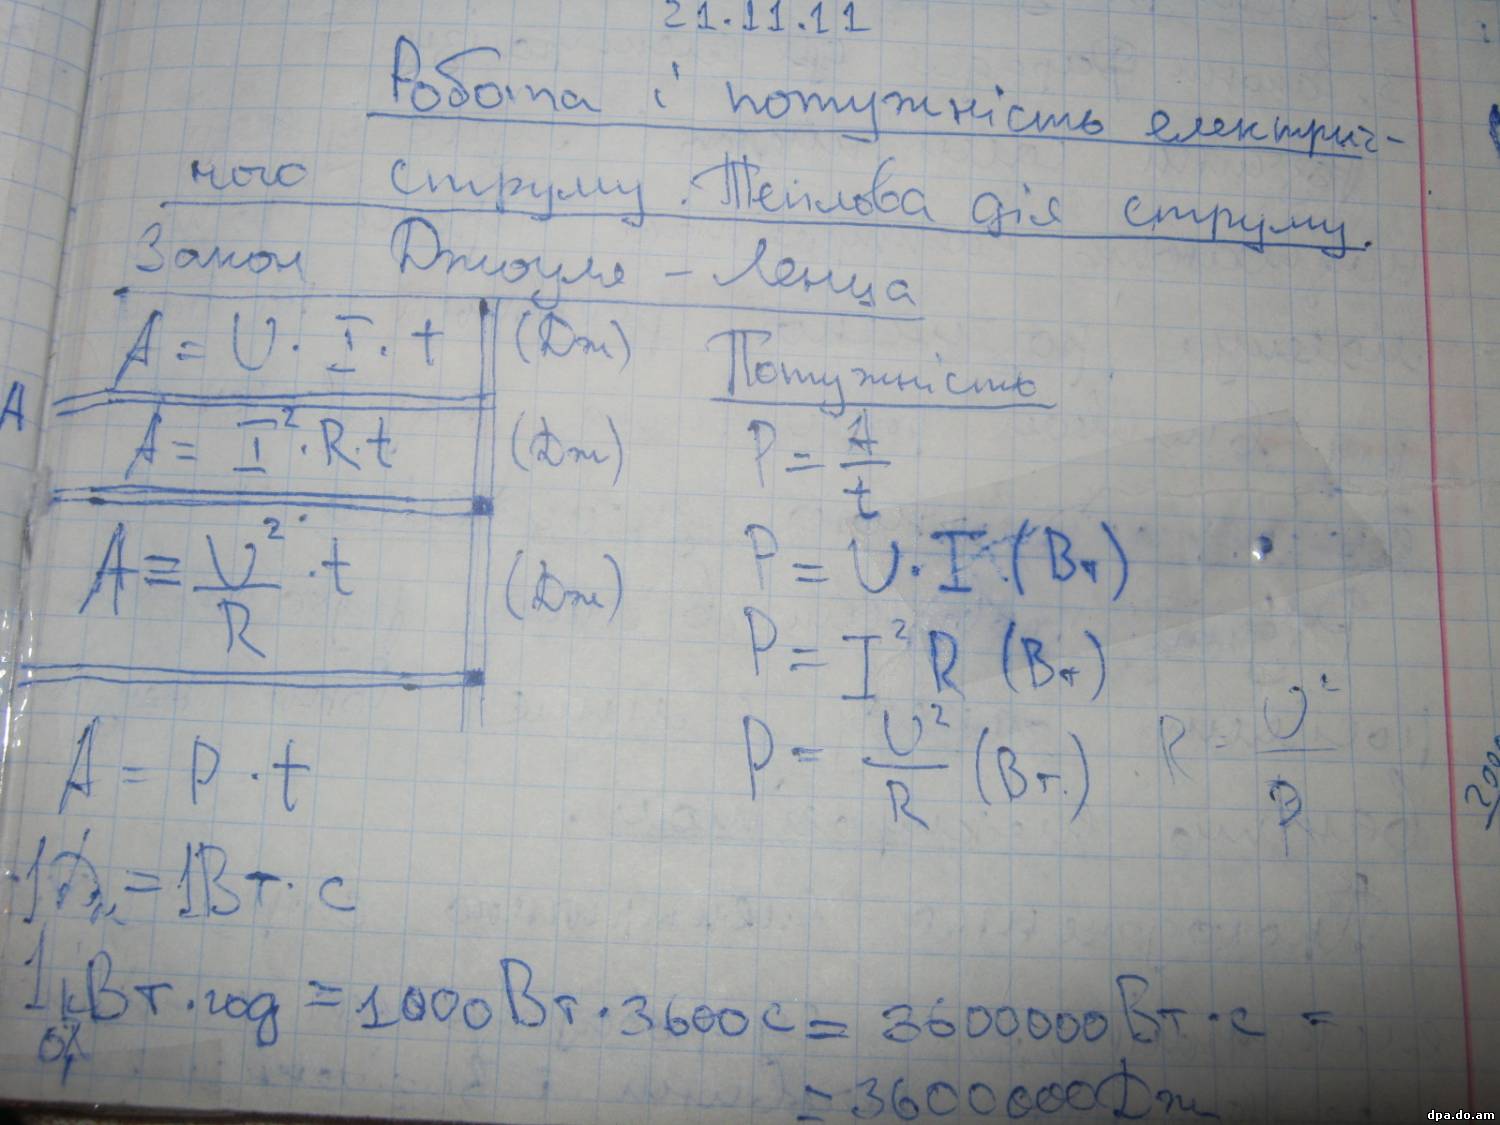 21.11.11
Робота і потужність електрич-
ного струму. Теплова дія струму.
Закон Джоуля - Ленца
A = U · I · t (Дж)
Потужність
A
A = I² · R · t (Дж)
P = A/t
A = U²/R · t (Дж)
P = U · I (Вт)
P = I² R (Вт)
P = U²/R (Вт.) R = U²/P
A = P · t
1Дж = 1Вт · с
1кВт · год = 1000Вт · 3600с = 3600000Вт · с =
= 3600000Дж
dpa.do.am